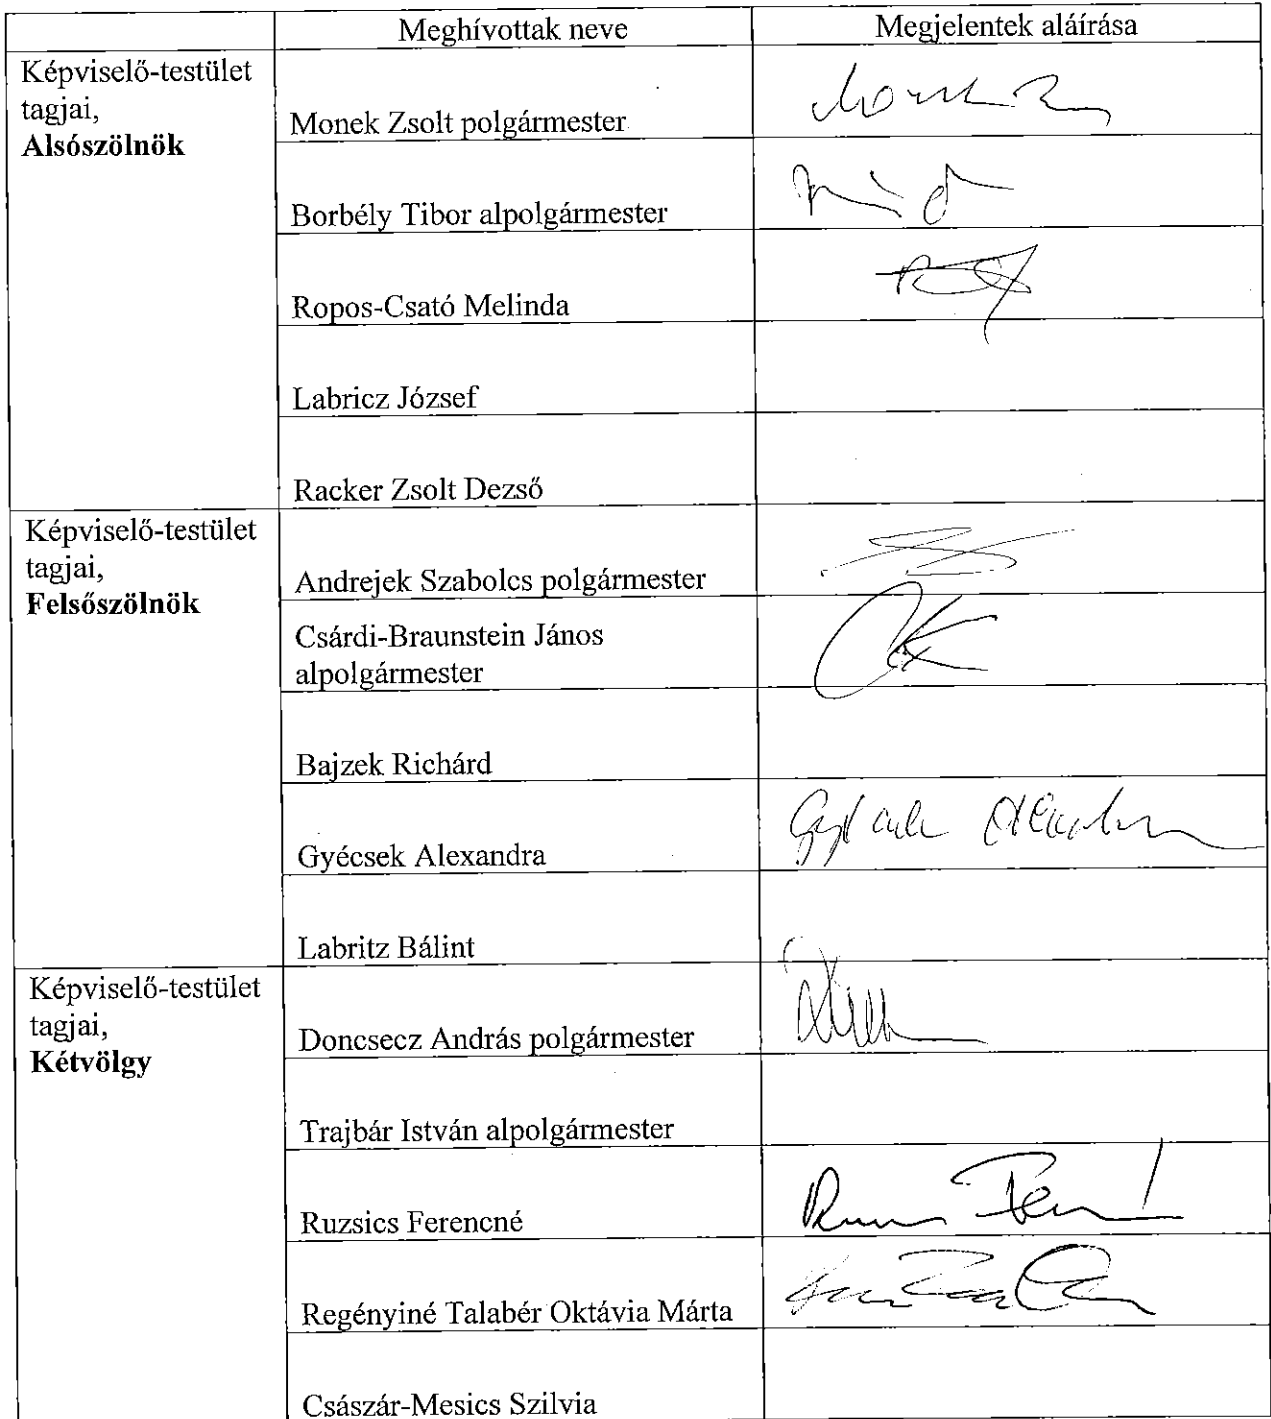 Meghívottak neve
Megjelentek aláírása
Képviselő-testület
tagjai,
Alsószölnök
Monek Zsolt polgármester
Borbély Tibor alpolgármester
Ropos-Csató Melinda
Labricz József
Racker Zsolt Dezső
Képviselő-testület
tagjai,
Felsőszölnök
Andrejek Szabolcs polgármester
Csárdi-Braunstein János
alpolgármester
Bajzek Richárd
Gyécsek Alexandra
Labritz Bálint
Képviselő-testület
tagjai,
Kétvölgy
Doncsecz András polgármester
Trajbár István alpolgármester
Ruzsics Ferencné
Regényiné Talabér Oktávia Márta
Császár-Mesics Szilvia